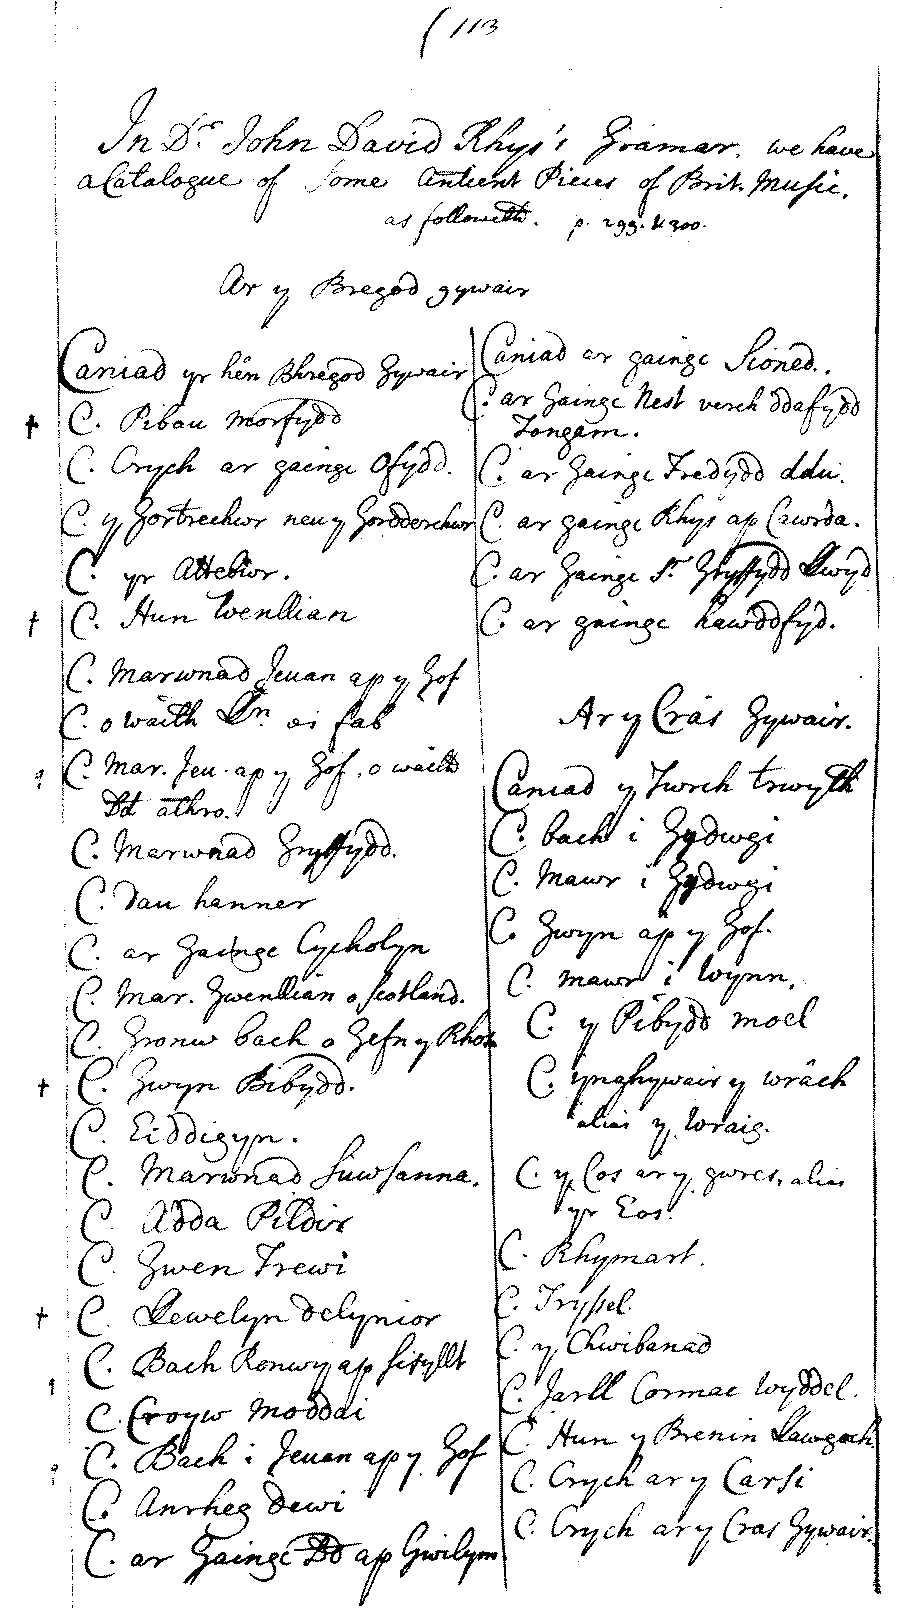 (113
In Dr. John David Rhys's Gramar. we have
a Catalogue of some Antient Pieces of Brit. Music.
as followeth. p. 299. & 300.
Ar y Bregod gywair
Caniad yr hên Bhregod Gywair
† C. Pibau Morfydd
C. Crych ar gainge Ofydd.
C. y Gortrechwr neu y Gordderchwr
C. yr Attebwr.
† C. Hun Wenllian
C. Marwnad Jeuan ap y Gof
C. o waith Lln. ai fab
C. Mar. Jeu. ap y Gof. o waith
Dd athro.
C. Marwnad Gryffydd.
C. Dau hanner
C. ar Gainge Cycholyn
C. Mar. Gwenllian o Scotland.
C. Gronw bach o Gefn y Rhos
† C. Gwyn Bibydd.
C. Eiddigyn.
C. Marwnad Suwsanna.
C. Adda Pildir
C. Gwen Trewi
† C. Llewelyn Delynior
C. Bach Ronwy ap Sisyllt
C. Croyw Moddai
C. Bach i Jeuan ap y Gof
C. Anrheg Dewi
C. ar Gainge Dd ap Gwilym
Caniad ar gainge Sioned.
C. ar Gainge Nest verch ddafydd
Tongam.
C. ar Gainge Fredydd ddu.
C. ar gainge Rhys ap Cawrda.
C. ar Gainge Sr Gryffydd Llwyd
C. ar gainge hawddfyd.
Ar y Crâs Gywair.
Caniad y Twrch trwyth
C. bach i Gydwgi
C. Mawr i Gydwgi
C. Gwyn ap y Gof.
C. mawr i Wynn.
C. y Pibydd moel
C. ynghywair y wrâch
alias y Wraig.
C. y Cos ar y gwres, alias
yr Eos.
C. Rhymart.
C. Tryssel.
C. y Chwibanad
C. Jarll Cormac Wyddel.
C. Hun y Brenin Llawgoch
C. Crych ar y Carsi
C. Crych ar y Cras Gywair.